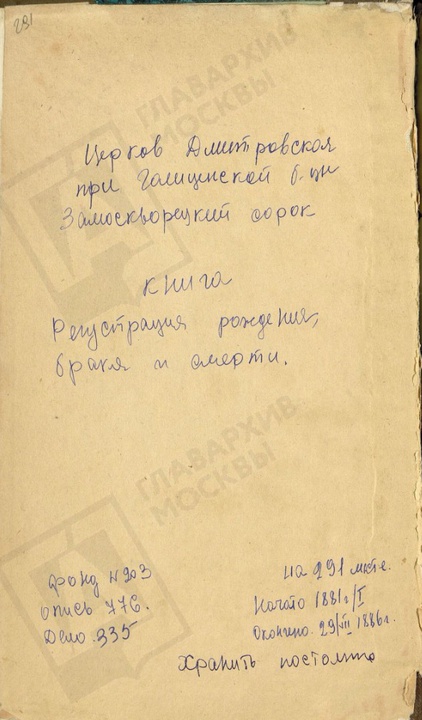 291
ГЛАВАРХИВ
МОСКВЫ
Церков Дмитровская
при Галицинской б-цы
Замоскворецкий сорок
книга
Регустрация рождения,
брака и смерти.
ГЛАВАРХИВ
МОСКВЫ
фонд N 203
опись 776.
Дело 335
на 291 листе.
Начато 1881г/I
Окончено 29/VII 1886г.
Хранить постоянно